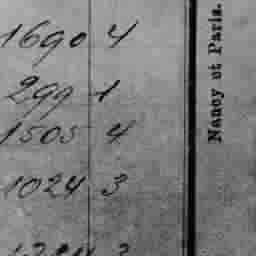 1690 4
299 1
1505 4
1024 3
Nancy et Paris.